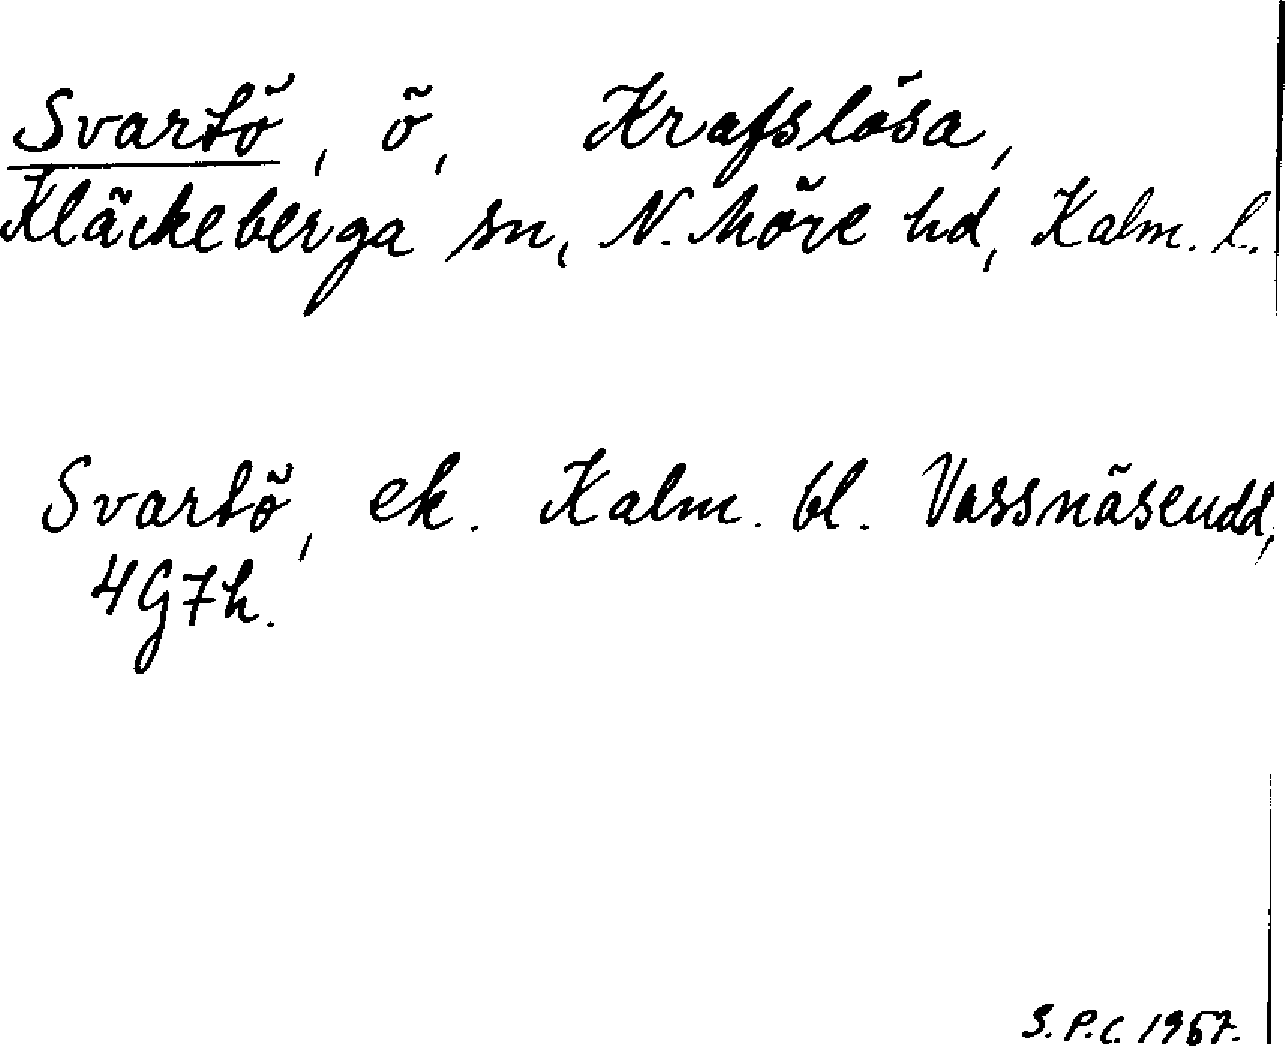 Svartö, ö, Krafslösa,
Kläckeberga sn, N. Möre hd, Kalm. l.
Svartö, ek. Kalm. bl. Vassnäsudd,
4G7h.
S.P.C. 1957.